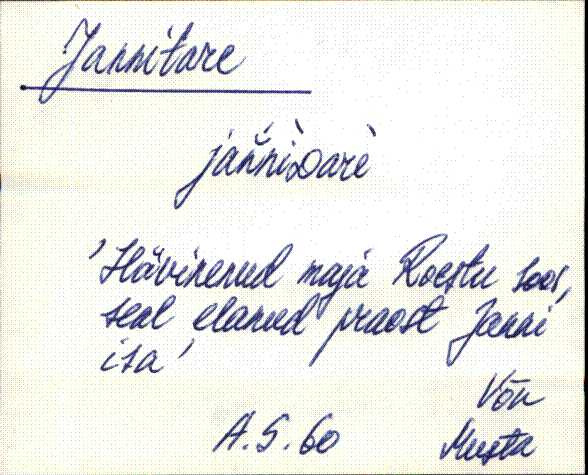 Jannitare
jaǹnìᴅarè
'Hävinenud maja Roestu soos,
seal elanud praost Janni
isa'
Võn
A.S.60 Musta